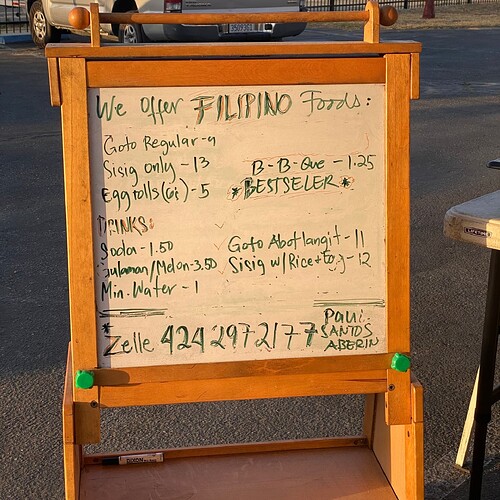 We Offer FILIPINO Foods:
Goto Regular - 9
Sisig only - 13
B-B-Que - 1.25
Eggrolls (6) - 5
*BESTSELER*
DRINKS:
Soda - 1.50
Goto Abotlangit - 11
Gulaman/Melon - 3.50
Sisig w/Rice + Egg - 12
Min. Water - 1
*Zelle 424 297 2177
Paul
SANTOS
ABERIN
LIFETIME